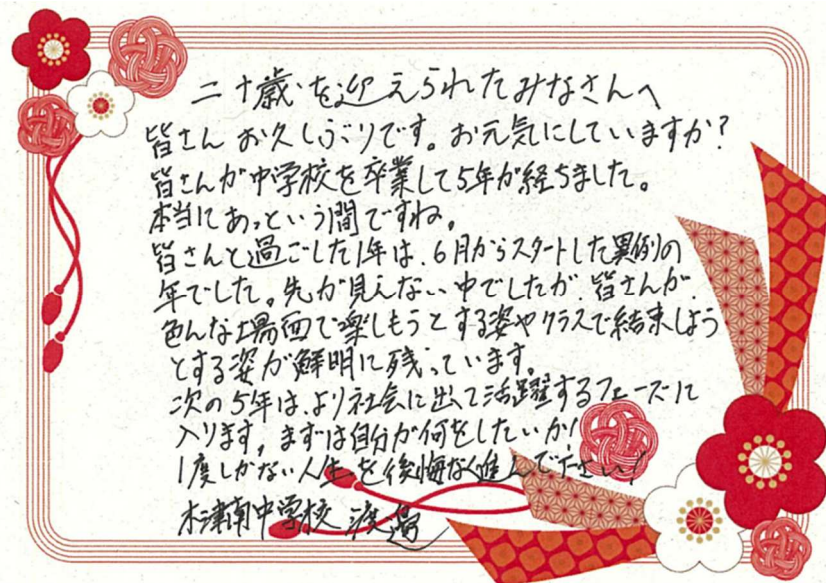 二十歳を迎えられたみなさんへ
皆さん お久しぶりです。お元気にしていますか?
皆さんが中学校を卒業して5年が経ちました。
本当にあっという間ですね。
皆さんと過ごした1年は、6月からスタートした異例の
年でした。先が見えない中でしたが、皆さんが、
色んな場面で楽しもうとする姿やクラスで結束しよう
とする姿が鮮明に残っています。
次の5年は、より社会に出て活躍するフェーズに
入ります。まずは自分が何をしたいか!
1度しかない人生を後悔なく進んで下さい!
木津南中学校 渡邉